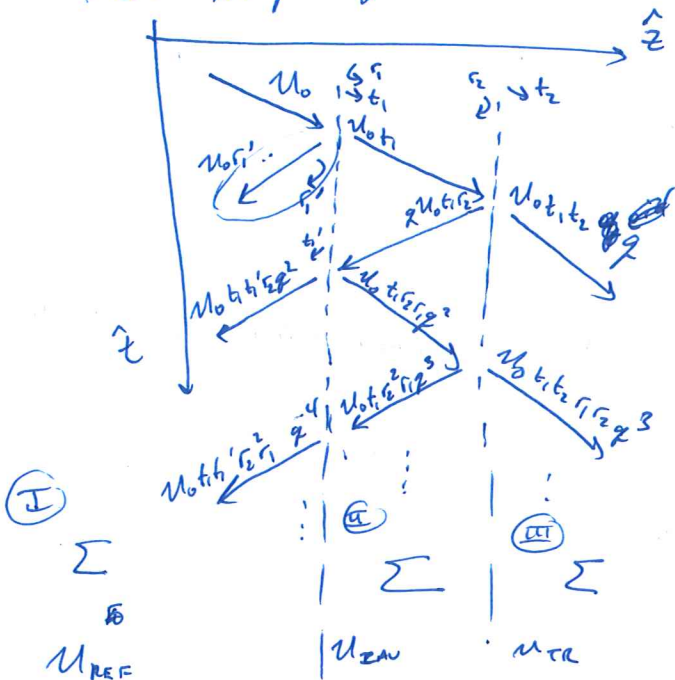 ẑ
U₀
r₁
t₁
r₂
t₂
U₀t₁
U₀r₁'..
r₁'
q U₀t₁r₂
U₀t₁t₂ q
t₁'
U₀t₁t₁'r₂q²
U₀t₁r₂r₁q²
t̂
U₀t₁r₂²r₁q³
U₀t₁t₂r₁r₂q³
U₀t₁t₁'r₂²r₁ q⁴
I
II
III
Σ
Σ
Σ
U_REF
U_TR